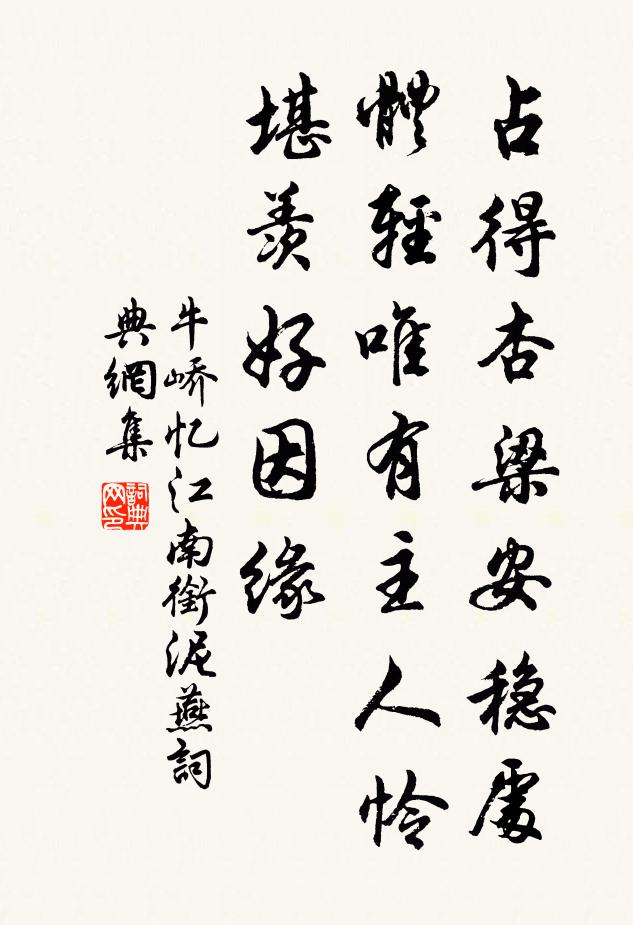 占得杏梁安穩處
體輕唯有主人怜
堪羨好因緣
牛嶠忆江南銜泥燕詞
典網集
詞典
网印